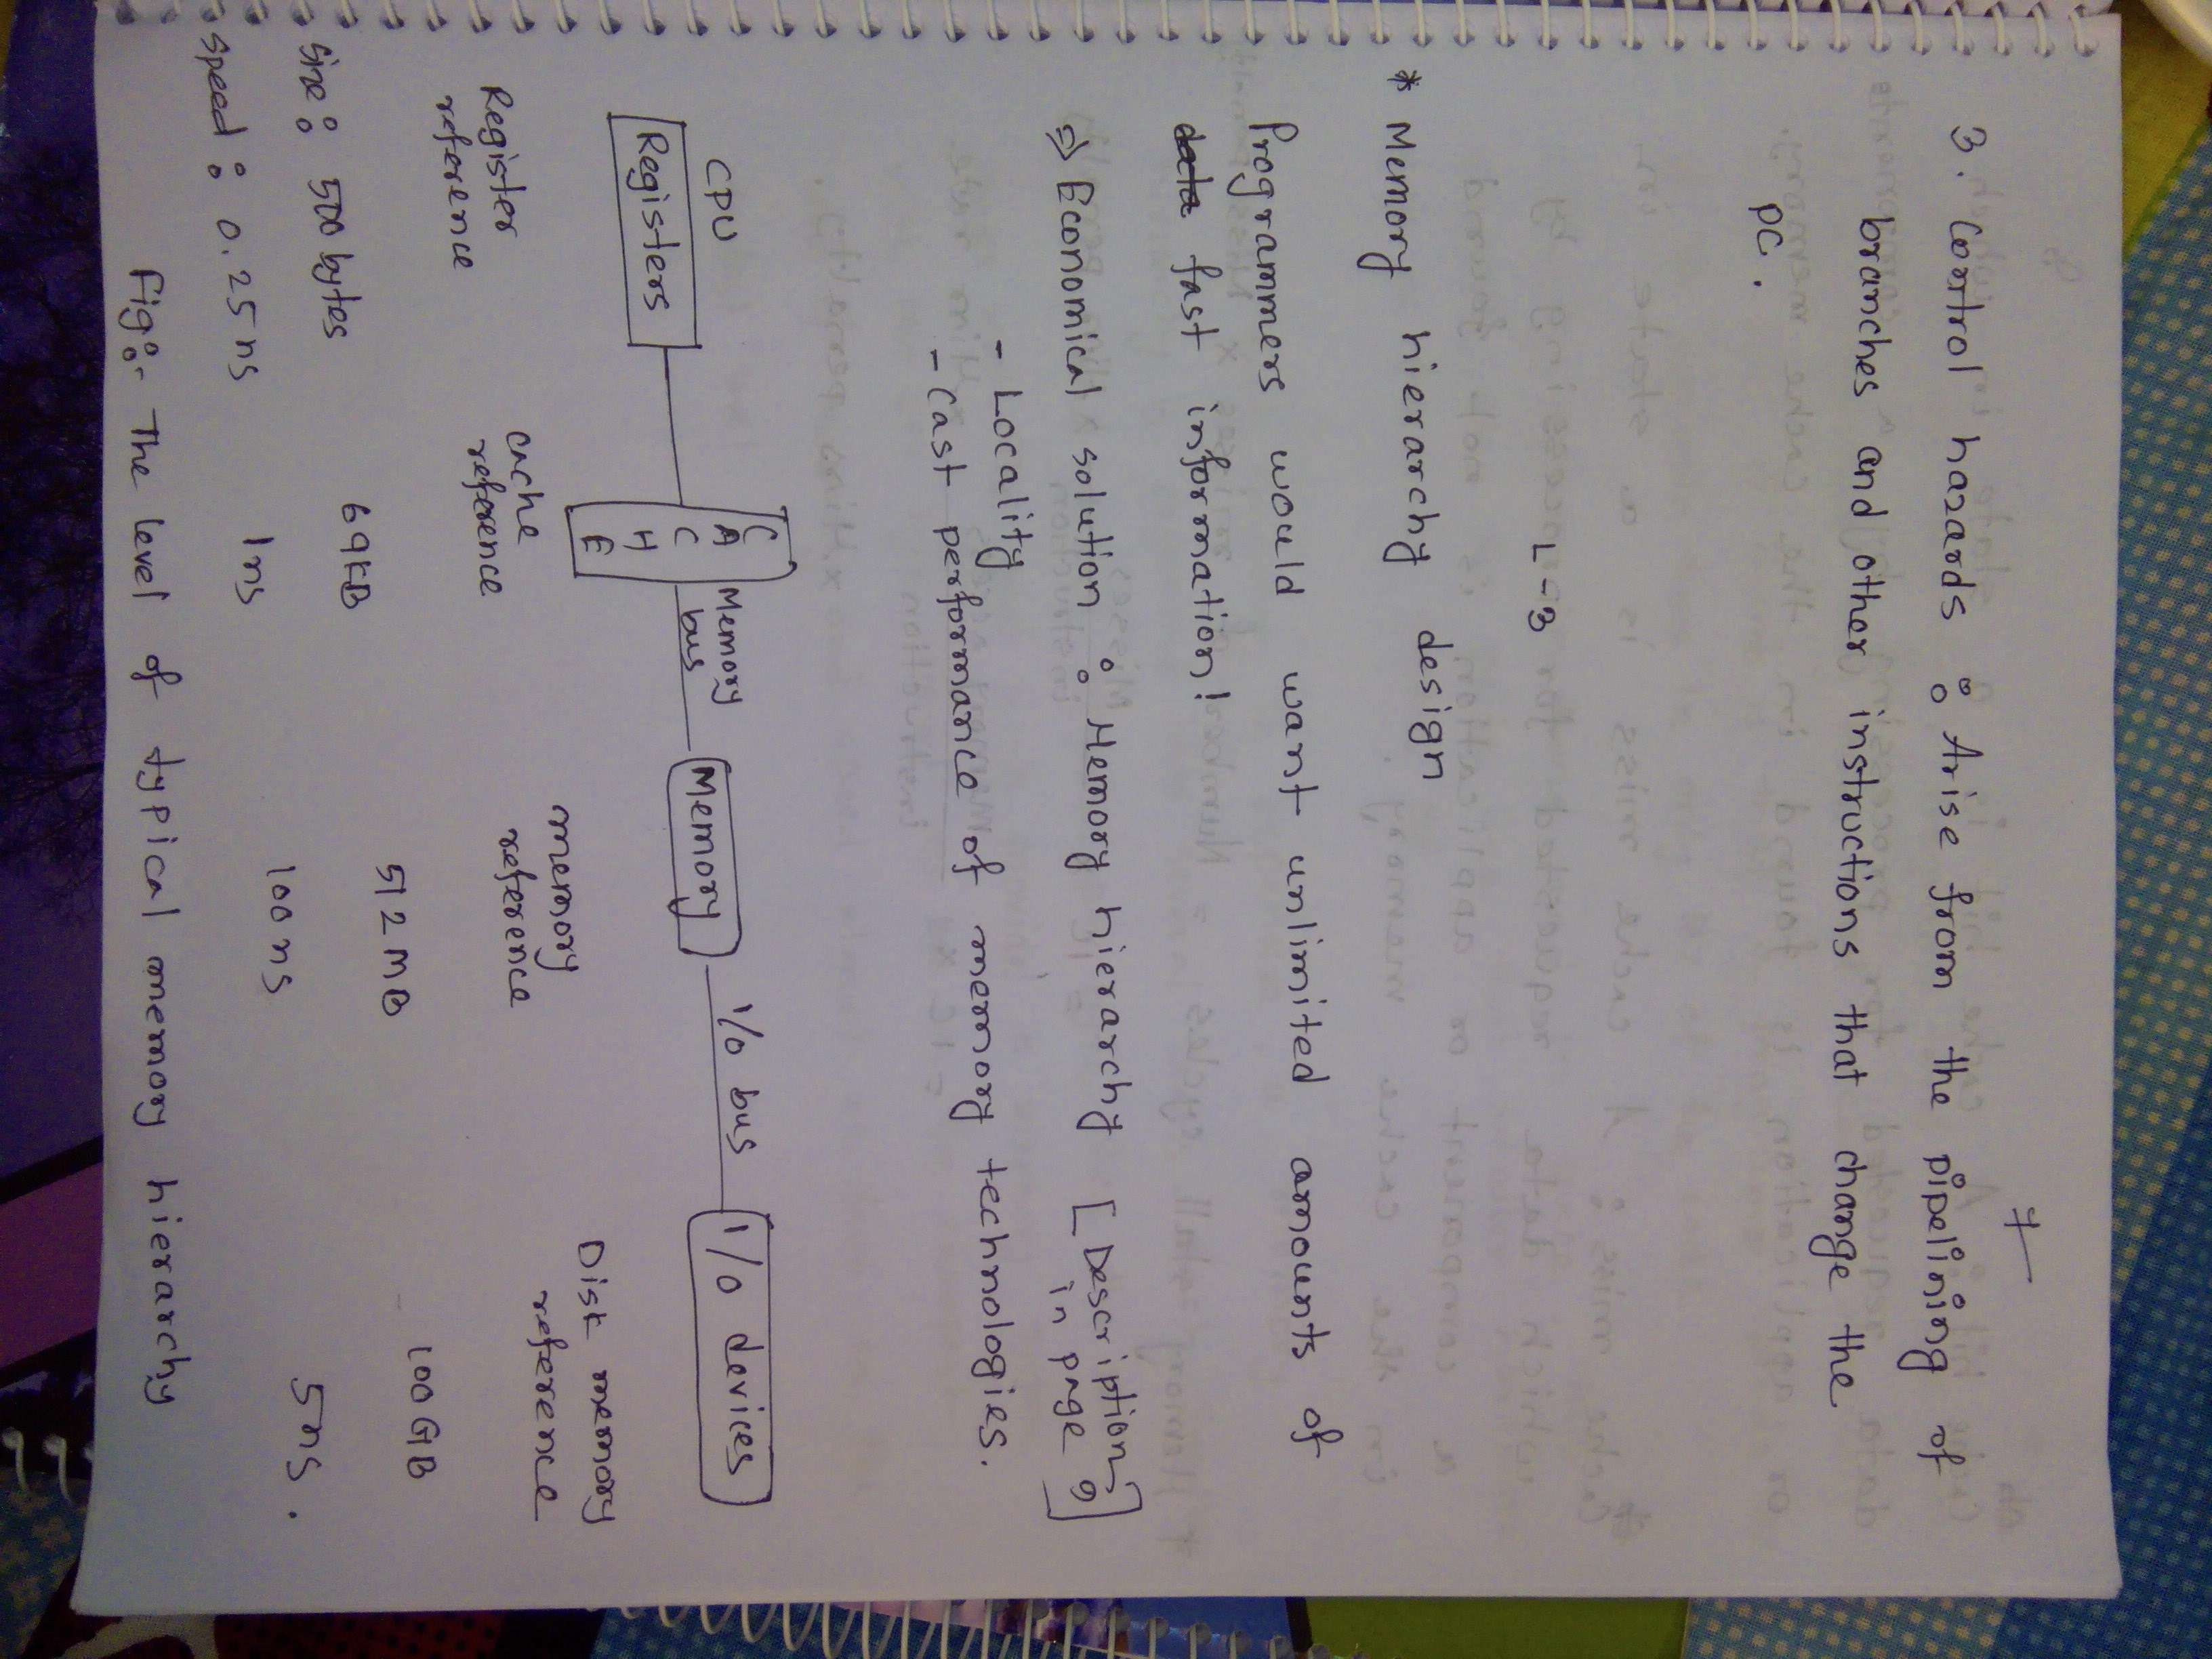 7
3. Control hazards : Arise from the pipelining of
branches and other instructions that change the
PC.
L-3
* Memory hierarchy design
Programmers would want unlimited amounts of
data fast information!
⇒ Economical solution : Memory hierarchy [Description in page 9]
- Locality
- Cast performance of memory technologies.
CPU
Registers
CACHE
Memory bus
Memory
I/O bus
I/O devices
Register reference
cache reference
memory reference
Disk memory reference
Size : 500 bytes 69KB 512 MB 100 GB
speed : 0.25 ns 1ns 100 ns 5ns.
Fig:- The level of typical memory hierarchy